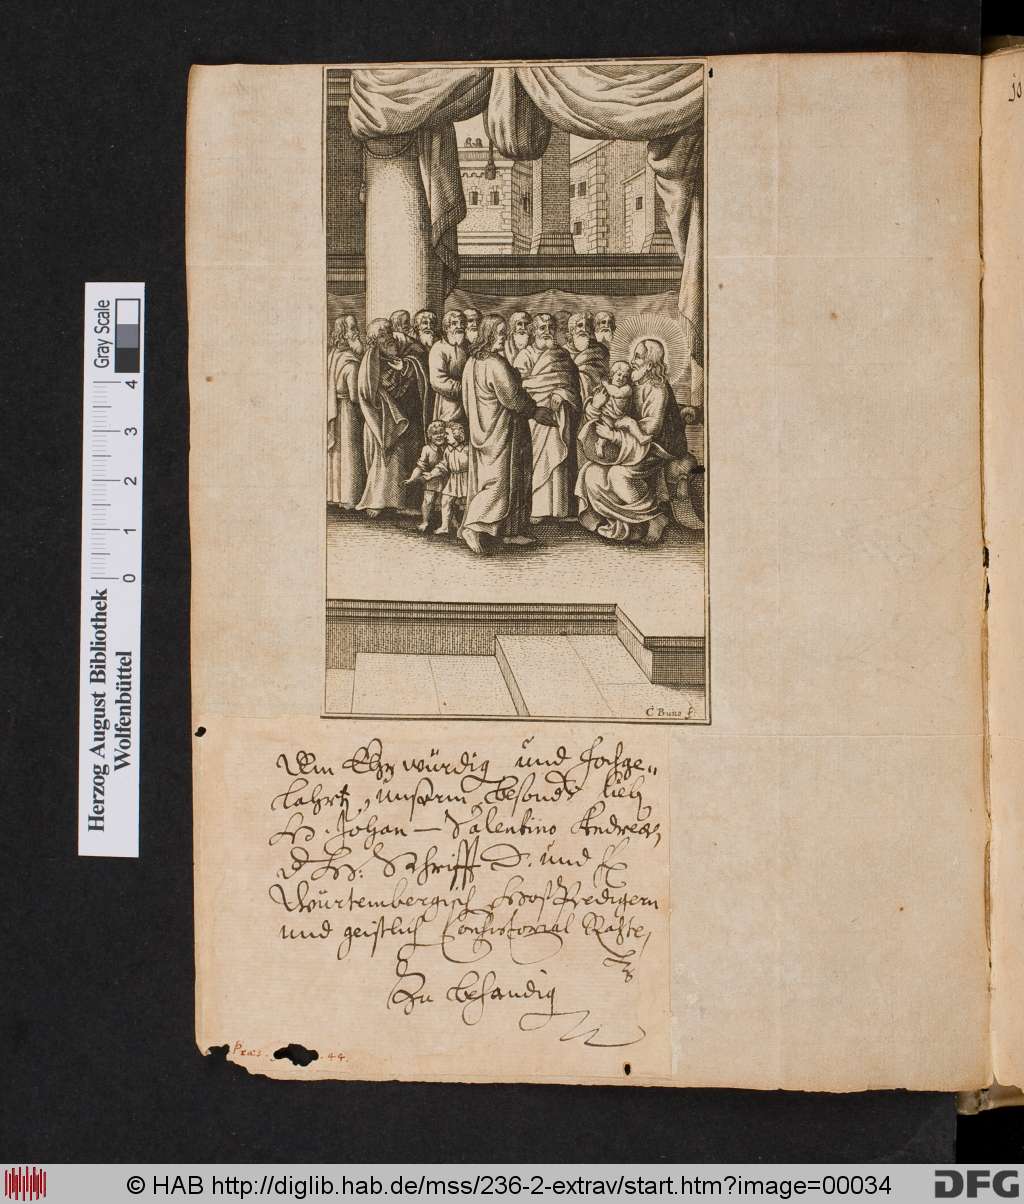 C Bruno f.
Dem Ehrwürdig und Hochge=
lahrt, unserm besonder lieb
H. Johan Valentino Andreae,
d H: Schrifft D. und
Würtembergisch Hoff Predigern
und geistlich Consistorial Rahte,
Zu behandig
Præs. 44.
Herzog August Bibliothek
Wolfenbüttel
Gray Scale
0 1 2 3 4
© HAB http://diglib.hab.de/mss/236-2-extrav/start.htm?image=00034
DFG